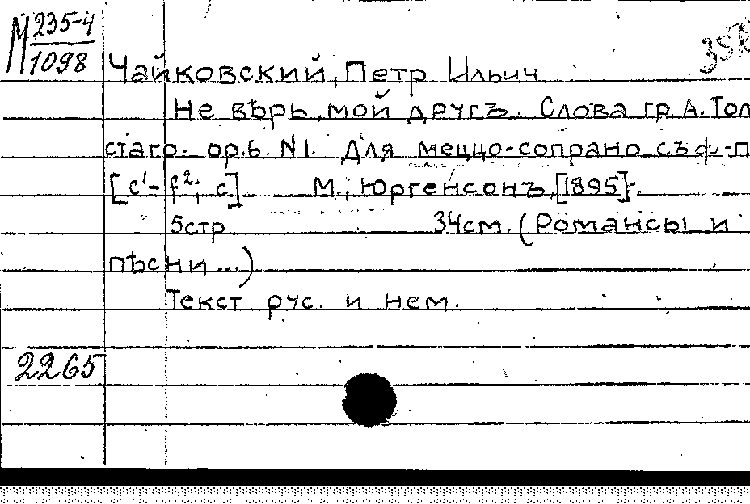 М 235-4
1098
Чайковский, Петр Ильич
Не вѣрь, мой другъ. Слова гр. А. Тол
стаго. ор.6 N1. Для меццо-сопрано съ ф.-п
[c¹-f²; c.] М., Юргенсонъ, [1895].
5стр 34см. (Романсы и
пѣсни...)
Текст рус. и нем.
2265